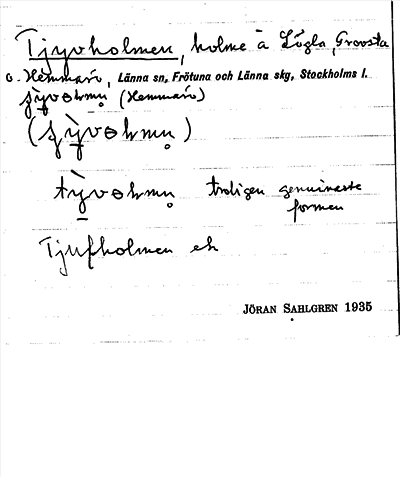 Tjyvholmen, holme å Lögla, Grovsta
o. Hemmarö, Länna sn, Frötuna och Länna skg, Stockholms l.
(Hemmarö)
troligen genuinaste
formen
Tjufholmen ek
JÖRAN SAHLGREN 1935